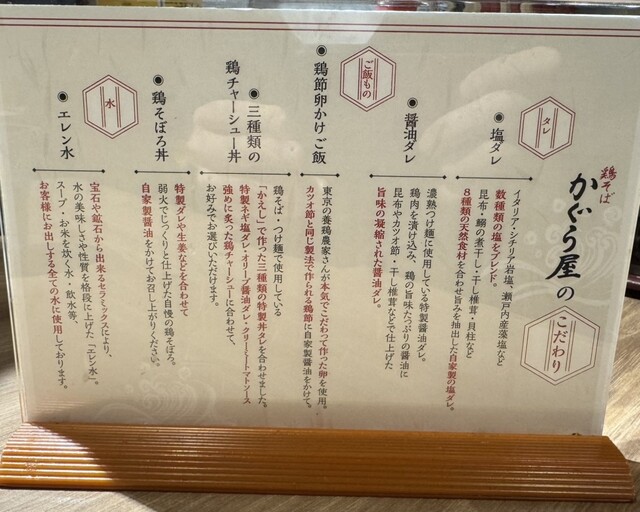 鶏そば
かぐら屋の
こだわり
タレ
◉塩ダレ
イタリア・シチリア岩塩、瀬戸内産藻塩など
数種類の塩をブレンド。
昆布・鰯の煮干し・干し椎茸・貝柱など
8種類の天然食材を合わせ旨みを抽出した自家製の塩ダレ。
◉醤油ダレ
濃熟つけ麺に使用している特製醤油ダレ。
鶏肉を漬け込み、鶏の旨味たっぷりの醤油に
昆布やカツオ節・干し椎茸などで仕上げた
旨味の凝縮された醤油ダレ。
ご飯もの
◉鶏節卵かけご飯
東京の養鶏農家さんが本気でこだわって作った卵を使用。
カツオ節と同じ製法で作られる鶏節に自家製醤油をかけて。
◉三種類の
鶏チャーシュー丼
鶏そば・つけ麺で使用している
「かえし」で作った三種類の特製丼タレを合わせました。
特製ネギ塩ダレ・オリーブ醤油ダレ・クリーミートマトソース
強めに炙った鶏チャーシューに合わせて、
お好みでお選びいただけます。
◉鶏そぼろ丼
特製ダレや生姜などを合わせて
弱火でじっくりと仕上げた自慢の鶏そぼろ。
自家製醤油をかけてお召し上がりください。
水
◉エレン水
宝石や鉱石から出来るセラミックスにより、
水の美味しさや性質を格段に上げた「エレン水」。
スープ・お米を炊く水・飲水等、
お客様にお出しする全ての水に使用しております。